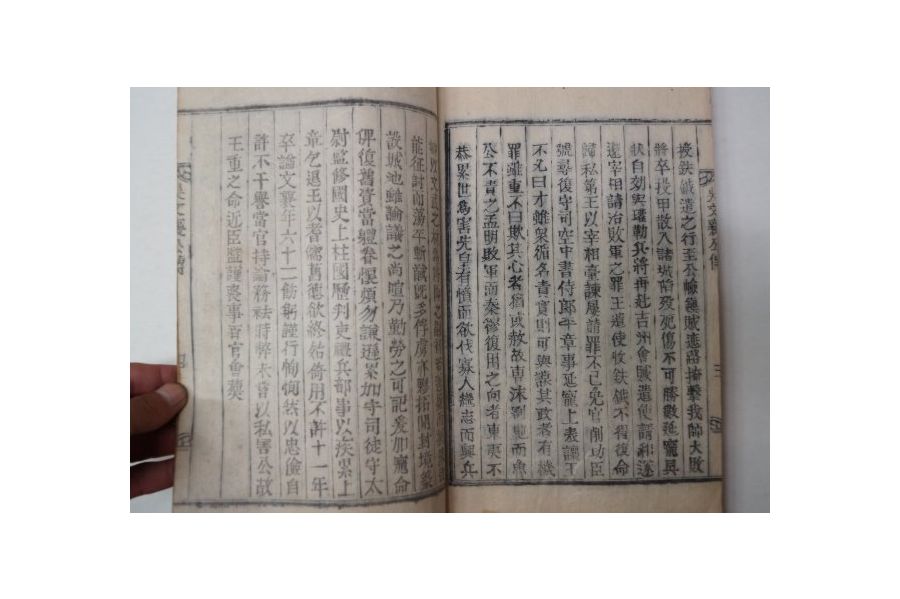 授鈇鉞遣之行至公嶮鎭賊遮路掩擊我師大敗
將卒投甲散入諸城陷歿死傷不可勝數延寵具
狀自劾與瓘勒兵將再赴吉州會賊遣使請和遂
還宰相請治敗軍之罪王遣使收鈇鉞不得復命
歸私第王以宰相臺諫屢請罪不已免官削功臣
號尋復守司空中書侍郎平章事延寵上表讓王
不允曰才雖衆循名責實則可與謀其政者有幾
罪雖重不曰欺其心者猶或赦故曹沫劉而魯
公不責之孟明敗軍而秦穆復用之向者東夷不
恭累世爲害先皇有憤而欲伐寡人繼志而興兵
能征討而蕩平斬馘旣多俘虜亦衆拓開封境築
設城池雖論議之尙喧乃勤勞之可記爰加寵命
俾復舊資當體眷懷煩勿謙遜累加守司徒守太
尉監修國史上柱國歷判吏禮兵部事以疾累上
章乞退王以耆儒舊德欲終始倚用不許十一年
卒諡文襄年六十二飭躬謹行恂恂然以忠儉自
許不干譽當官持論務祛時弊未嘗以私害公故
王重之命近臣監護喪事百官會葬
吳文襄公傳